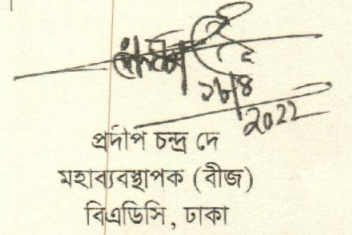 ১৮/৪
2022
প্রদীপ চন্দ্র দে
মহাব্যবস্থাপক (বীজ)
বিএডিসি, ঢাকা